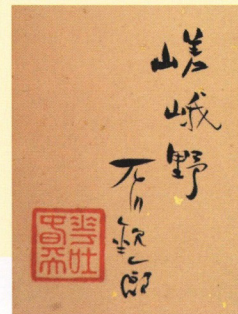 嵯峨野
石川欽一郎